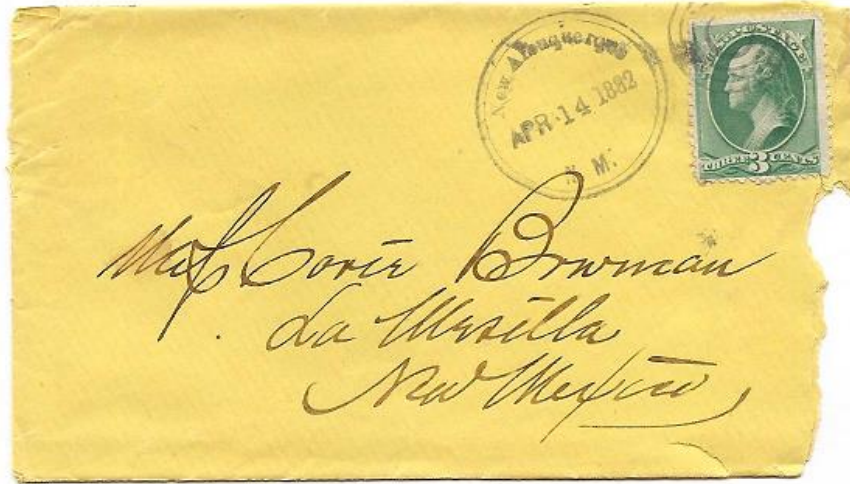 New Albuquerque
APR 14 1882
N. M.
U.S. POSTAGE
THREE 3 CENTS
Miss Corie Bowman
La Mesilla
New Mexico